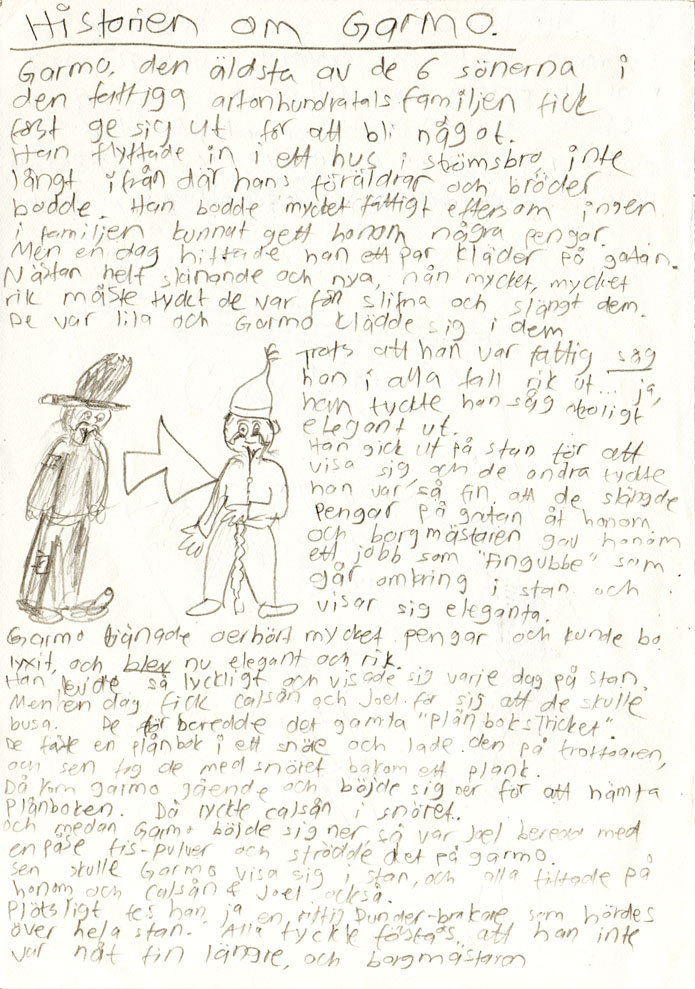 Historien om Garmo.
Garmo, den äldsta av de 6 sönerna i
den fattiga artonhundratals familjen fick
först ge sig ut för att bli något.
Han flyttade in i ett hus i strömsbro inte
långt ifrån där hans föräldrar och bröder
bodde. Han bodde mycket fattigt eftersom ingen
i familjen kunnat gett honom några pengar.
Men en dag hittade han ett par kläder på gatan.
Nästan helt skinande och nya, nån mycket, mycket
rik måste tyckt de var för slitna och slängt dem.
De var lila och Garmo klädde sig i dem
Trots att han var fattig såg
han i alla fall rik ut... ja,
han tyckte han såg otroligt
elegant ut.
Han gick ut på stan för att
visa sig och de andra tyckte
han var så fin att de slängde
pengar på gatan åt honom
och borgmästaren gav honom
ett jobb som "Fingubbe" som
går omkring i stan och
visar sig eleganta.
Garmo tjänade oerhört mycket pengar och kunde bo
lyxit, och blev nu elegant och rik.
Han levde så lyckligt och visade sig varje dag på stan.
Men en dag fick calsån och Joel för sig att de skulle
busa. De förberedde det gamla "PlånboksTricket".
De fäste en plånbok i ett snöre och lade den på trottoaren,
och sen tog de med snöret bakom ett plank.
Då kom garmo gående och böjde sig ner för att hämta
Plånboken. Då ryckte calsån i snöret.
och medan Garmo böjde sig ner så var Joel beredd med
en påse fis-pulver och strödde det på garmo.
Sen skulle Garmo visa sig i stan, och alla tittade på
honom och calsån & Joel också.
Plötsligt fes han, ja en riktig Dunder-brakare som hördes
över hela stan. Alla tyckte förstås att han inte
var nåt fin längre, och borgmästaren